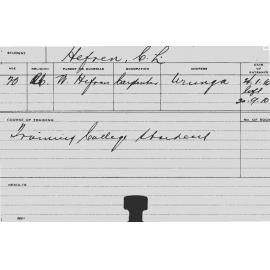 STUDENT Hefren, C. L.
AGE RELIGION PARENT OR GUARDIAN OCCUPATION ADDRESS DATE OF ENTRANCE
20 W. Hefren Carpenter Urunga
Left
COURSE OF TRAINING No. OF
Training College Student
RESULTS